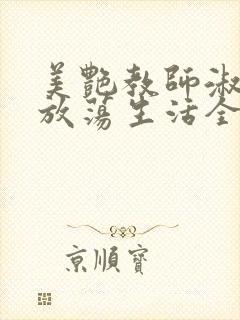 美艷教師淑
放蕩生活全
京順寶